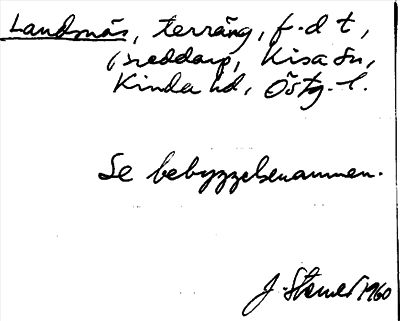 Landsnäs, terräng, f.d t,
Breddarp, Kisa sn,
Kinda hd, Östg.l.
Se bebyggelsenamnen.
J. 1960